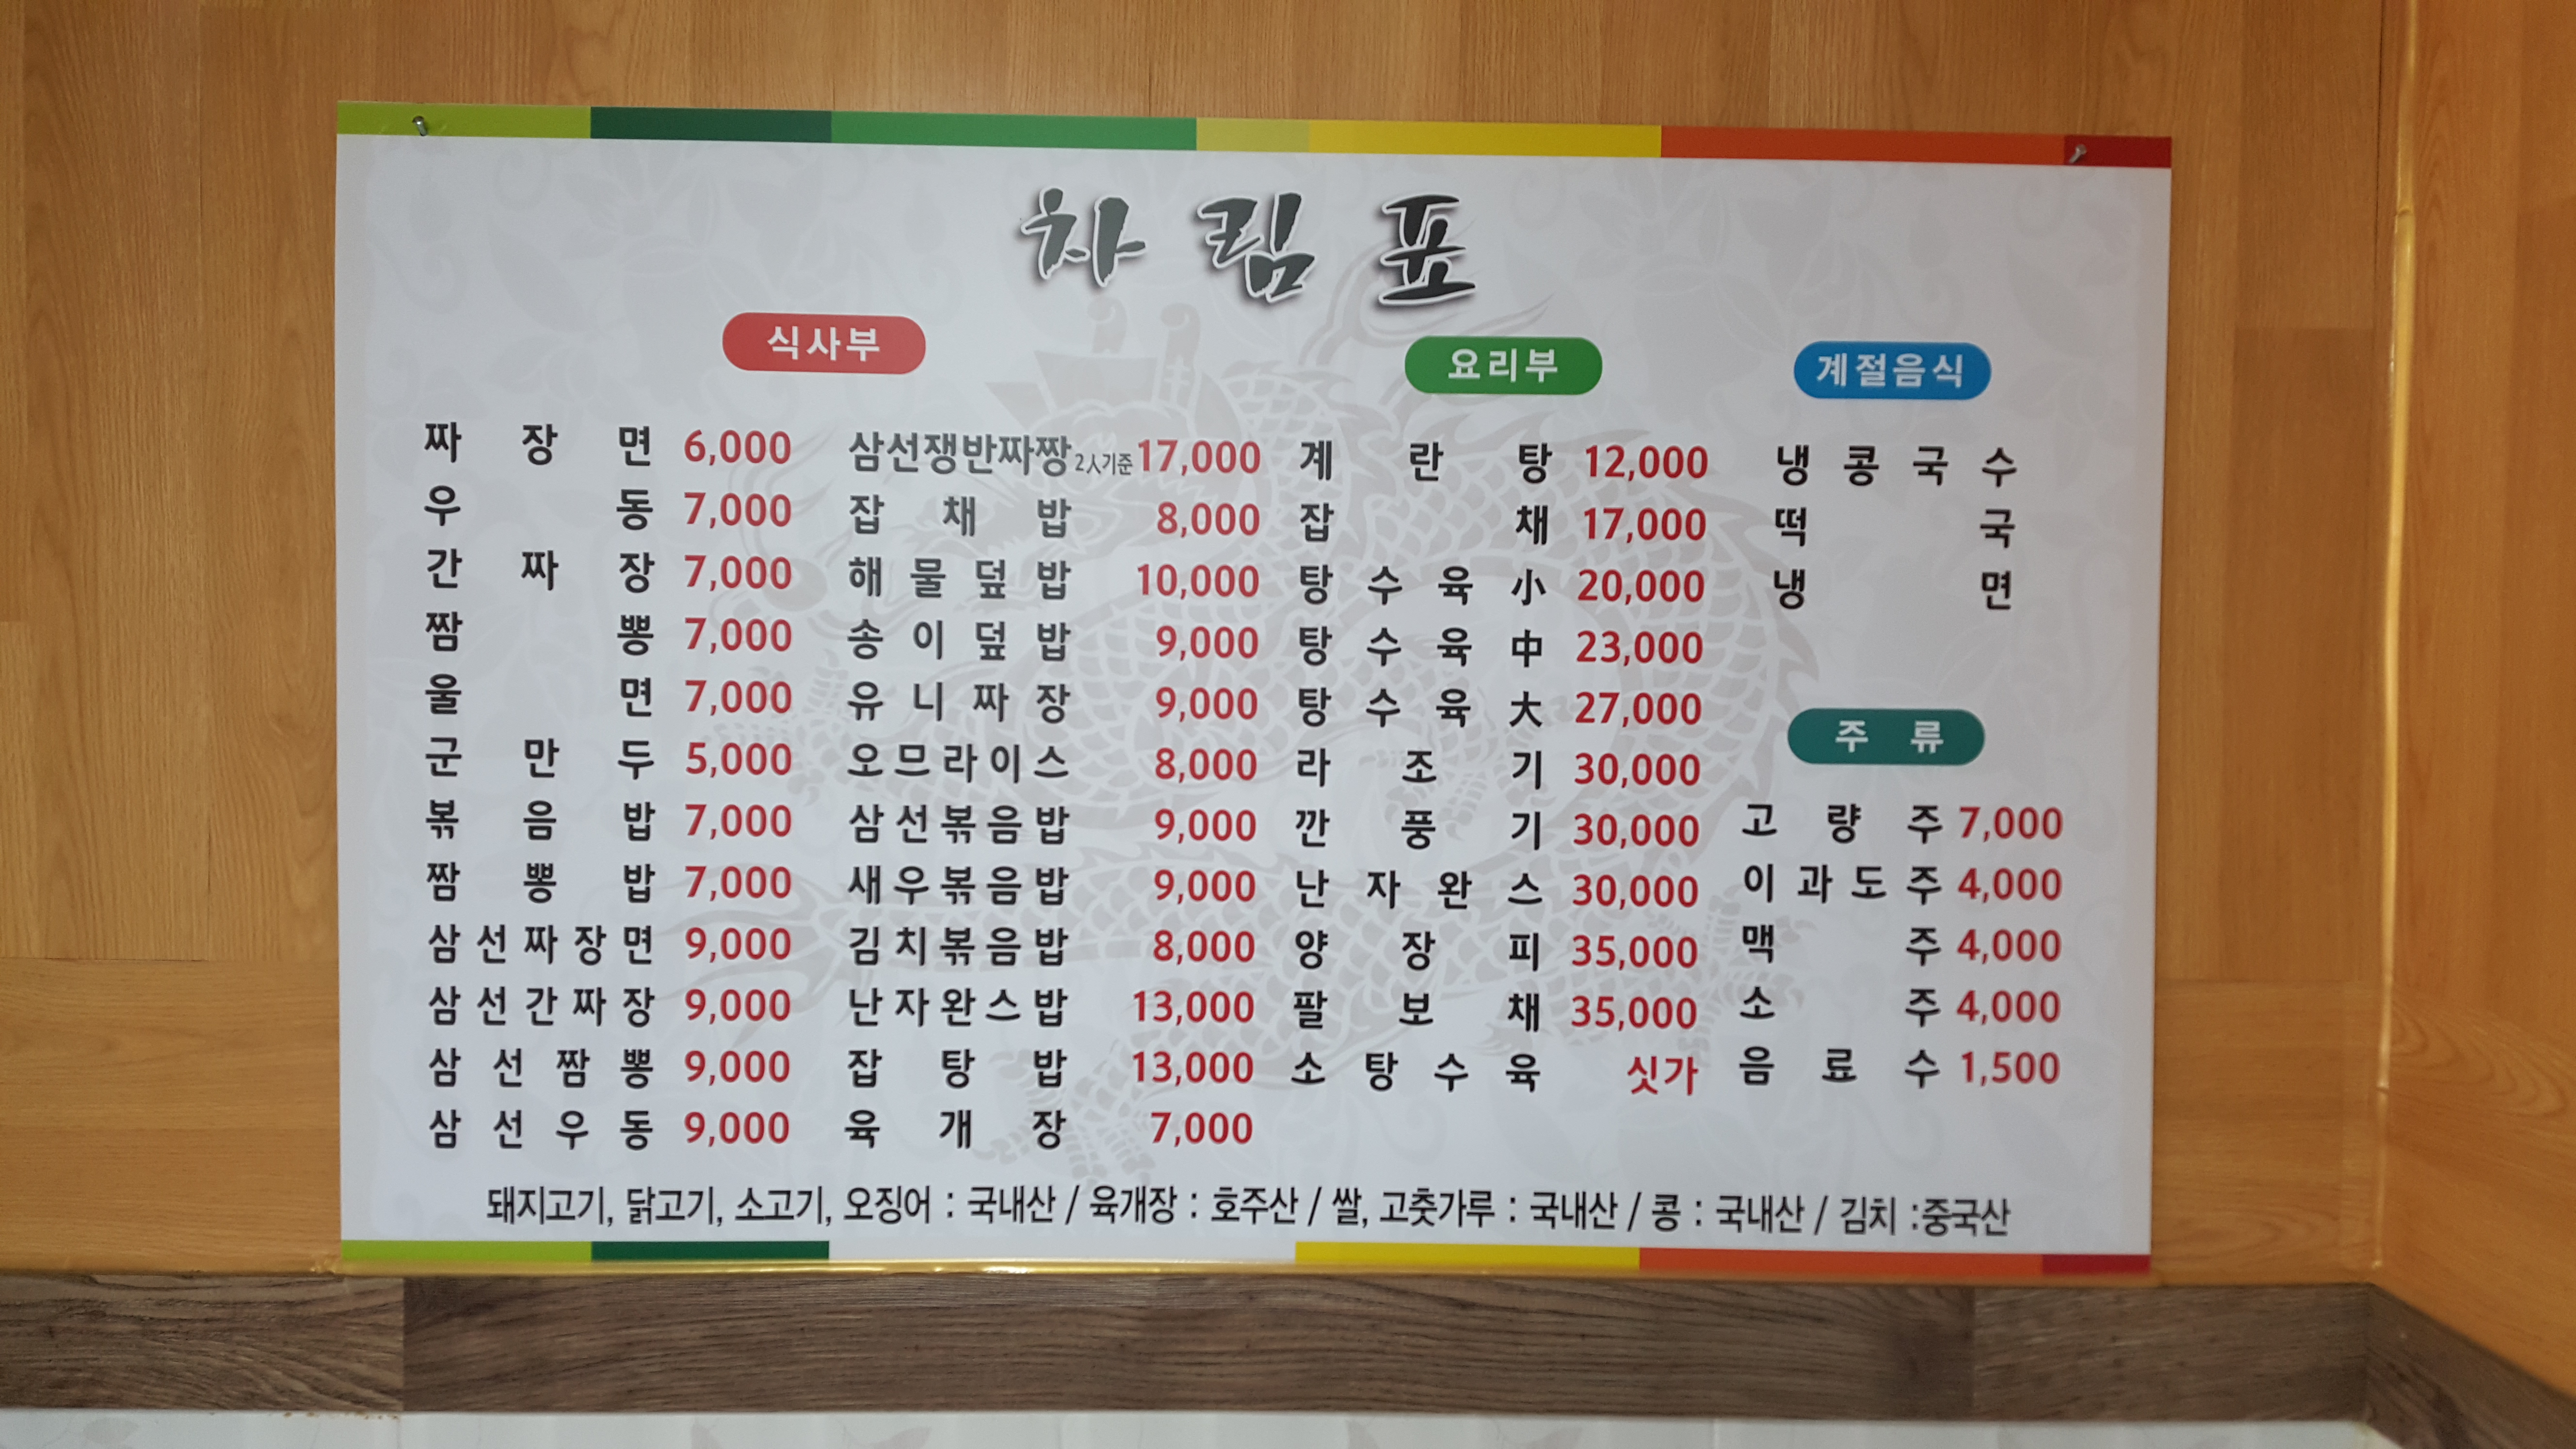 차림표
식사부
짜장면 6,000
우동 7,000
간짜장 7,000
짬뽕 7,000
울면 7,000
군만두 5,000
볶음밥 7,000
짬뽕밥 7,000
삼선짜장면 9,000
삼선간짜장 9,000
삼선짬뽕 9,000
삼선우동 9,000
삼선쟁반짜짱 2人기준 17,000
잡채밥 8,000
해물덮밥 10,000
송이덮밥 9,000
유니짜장 9,000
오므라이스 8,000
삼선볶음밥 9,000
새우볶음밥 9,000
김치볶음밥 8,000
난자완스밥 13,000
잡탕밥 13,000
육개장 7,000
요리부
계란탕 12,000
잡채 17,000
탕수육 小 20,000
탕수육 中 23,000
탕수육 大 27,000
라조기 30,000
깐풍기 30,000
난자완스 30,000
양장피 35,000
팔보채 35,000
소탕수육 싯가
계절음식
냉콩국수
떡국
냉면
주류
고량주 7,000
이과도주 4,000
맥주 4,000
소주 4,000
음료수 1,500
돼지고기, 닭고기, 소고기, 오징어 : 국내산 / 육개장 : 호주산 / 쌀, 고춧가루 : 국내산 / 콩 : 국내산 / 김치 :중국산